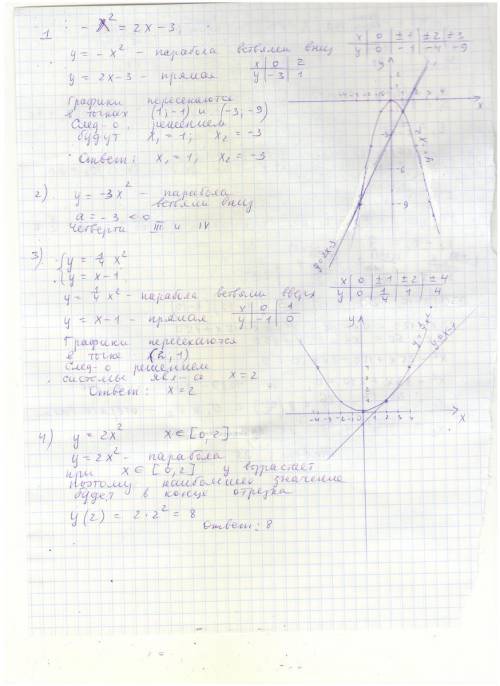 1 - x² = 2x - 3
y = - x² - парабола ветвями вниз
x 0 ±1 ±2 ±3
y 0 -1 -4 -9
y = 2x-3 - прямая
x 0 2
y -3 1
Графики пересекаются
в точках (1,-1) и (-3,-9)
След-о, решением
будут x₁ = 1; x₂ = -3
Ответ: x₁ = 1; x₂ = -3
y
x
-6
-9
y=2x-3
2) y = -3x² - парабола
ветвями вниз
a = -3 < 0
Четверти III и IV
3) { y = 1/4 x²
{ y = x - 1
y = 1/4 x² - парабола ветвями вверх
x 0 ±1 ±2 ±4
y 0 1/4 1 4
y = x - 1 - прямая
x 0 1
y -1 0
Графики пересекаются
в точке (2, 1)
След-о решением
системы явл-ся x = 2
Ответ: x = 2
y
y=x-1
x
4) y = 2x² x ∈ [0,2]
y = 2x² - парабола
при x ∈ [0,2] y возрастает
Поэтому наибольшее значение
будет в конце отрезка
y(2) = 2·2² = 8
Ответ: 8